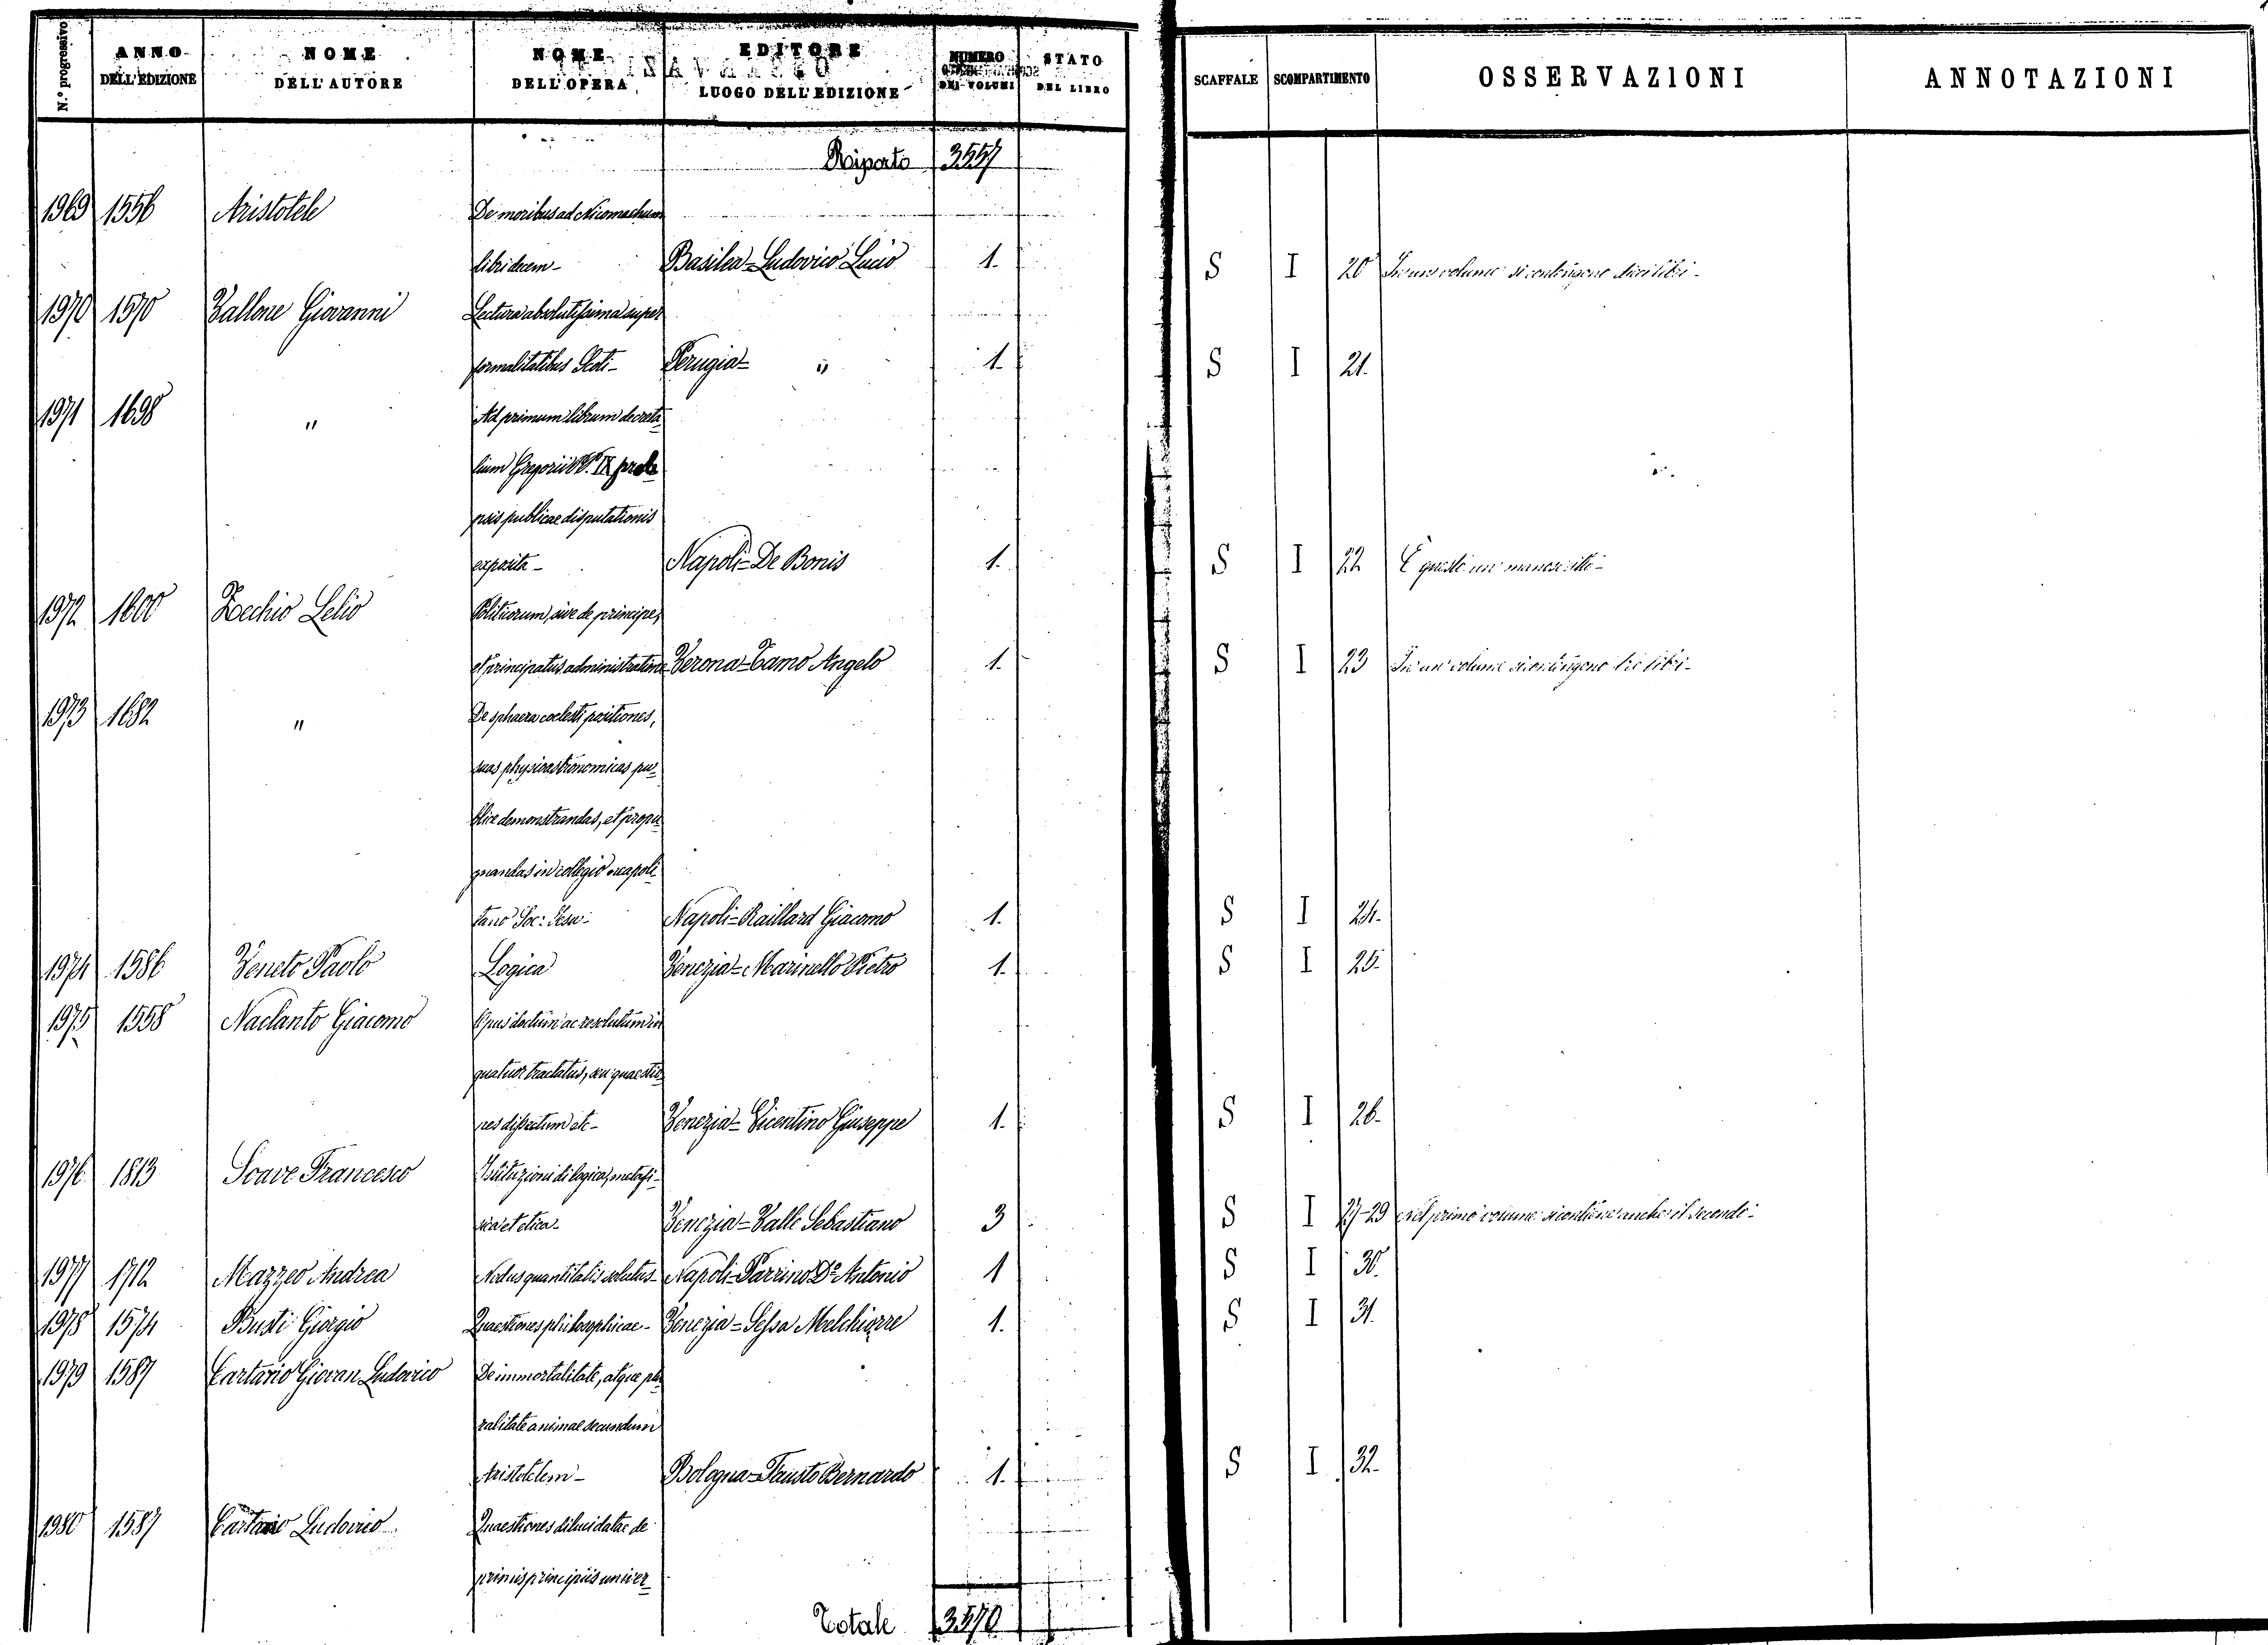 N.º progressivo | ANNO DELL'EDIZIONE | NOME DELL'AUTORE | NOME DELL'OPERA | EDITORE LUOGO DELL'EDIZIONE | NUMERO DEI VOLUMI | STATO DEL LIBRO | SCAFFALE | SCOMPARTIMENTO | OSSERVAZIONI | ANNOTAZIONI
Riporto 3557
1969 1556 Aristotele De moribus ad Nicomachum
libri decem - Basilea = Ludovico Lucio 1. S I 20 In un volume si contengono dieci libri -
1970 1570 Vallone Giovanni Lectura absolutissima super
formalitatibus Scoti - Perugia = " 1. S I 21.
1971 1698 " Ad primum librum decreta-
lium Gregorii PP. IX prole
psis publicae disputationis
exposita - Napoli = De Bonis 1. S I 22 È questo un manoscritto -
1972 1600 Zecchio Lelio Politicorum, sive de principe,
et principatus administratione Verona = Tamo Angelo 1. S I 23 In un volume si contengono tre libri -
1973 1682 " De sphaera coelesti positiones,
suas physicastronomicas pu-
blice demonstrandas, et propu-
gnandas in collegio neapoli-
tano Soc: Jesu - Napoli = Raillard Giacomo 1. S I 24.
1974 1586 Veneto Paolo Logica Venezia = Marinello Pietro 1. S I 25.
1975 1558 Naclanto Giacomo Opus doctum ac resolutum in
quatuor tractatus, seu quaestio-
nes dissectum etc - Venezia = Vicentino Giuseppe 1. S I 26.
1976 1813 Soave Francesco Istituzioni di logica, metafi-
sica et etica - Venezia = Valle Sebastiano 3 S I 27-29 Nel primo volume si contiene anche il secondo -
1977 1712 Mazzeo Andrea Nodus quantitatis solutus - Napoli = Parrino D.co Antonio 1 S I 30.
1978 1574 Busti Giorgio Quaestiones philosophicae - Venezia = Sessa Melchiorre 1. S I 31.
1979 1587 Cartario Giovan Ludovico De immortalitate, atque plu
ralitate animae secundum
Aristotelem - Bologna = Fausto Bernardo 1. S I 32.
1980 1587 Cartario Ludovico Quaestiones dilucidatae de
primis principiis univer-
Totale 3570